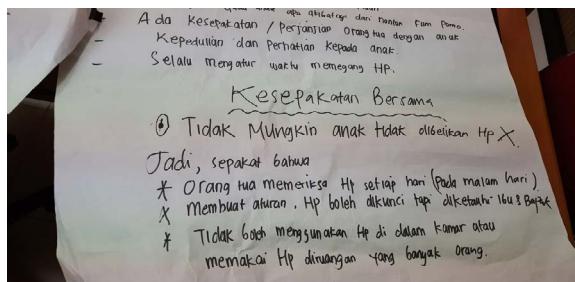 apa akibatnya dari nonton Fum Porno.
- Ada Kesepakatan / perjanjian orang tua dengan anak
- Kepedulian dan perhatian kepada anak.
- Selalu mengatur waktu memegang HP.
Kesepakatan Bersama
6 Tidak Mungkin anak tidak dibelikan Hp X.
Jadi, sepakat bahwa
* Orang tua memeriksa Hp setiap hari (pada malam hari)
X Membuat aturan. HP boleh dikunci tapi diketahui Ibu & Bapak
* Tidak boleh menggunakan Hp di dalam kamar atau
memakai Hp diruangan yang banyak orang.